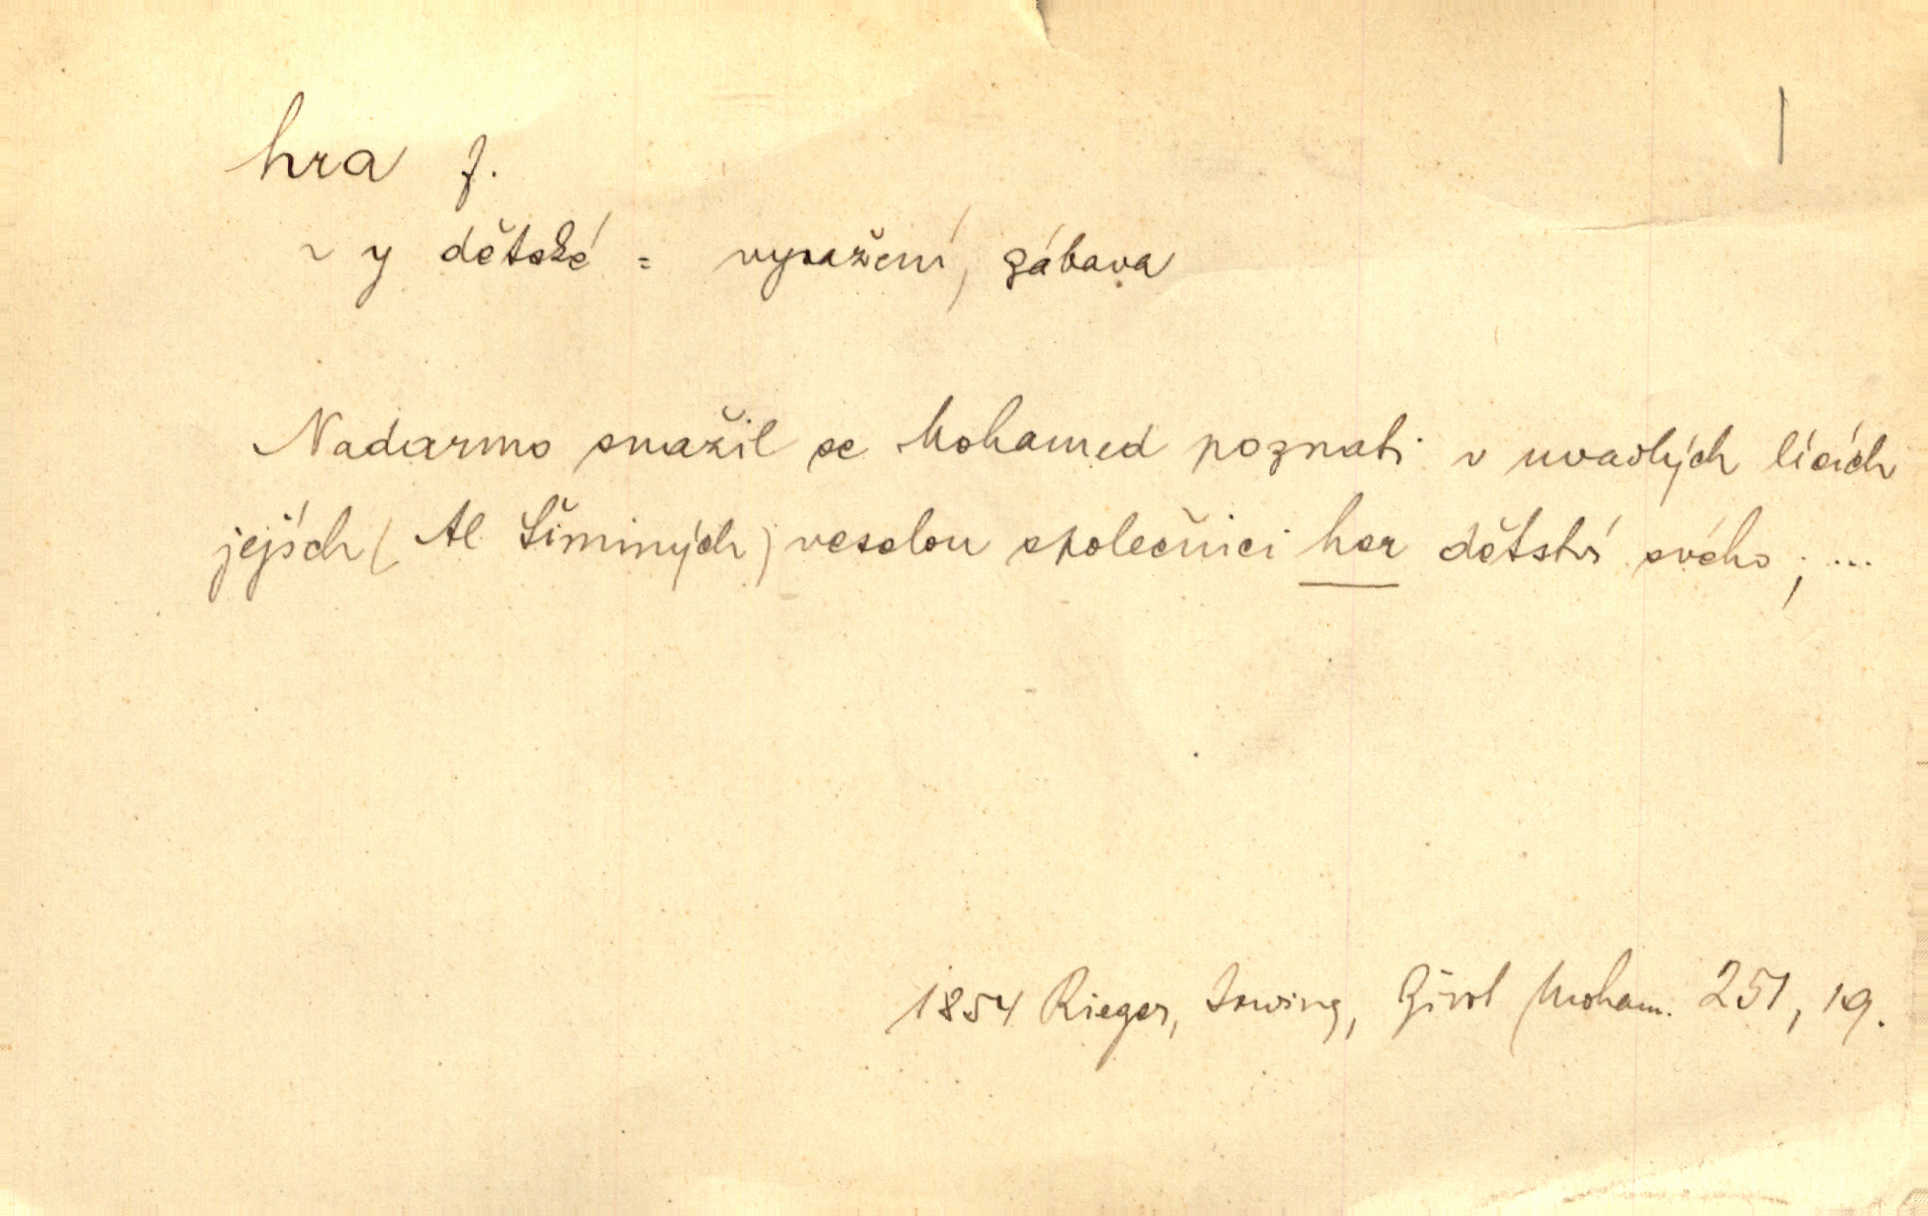 hra f.
~ y dětské = vyražení, zábava
Nadarmo snažil se Mohamed poznati v uvadlých lících
jejích (Al Šiminých) veselou společnici her dětství svého; ...
1854 Rieger, Irwing, Živ Moham. 251, 19.